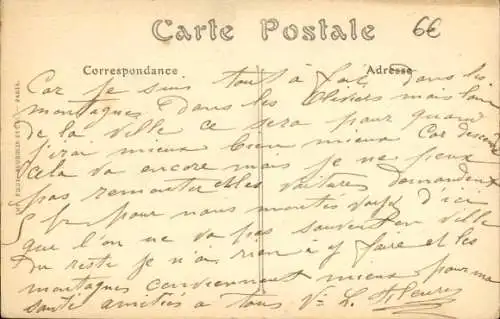 Carte Postale
6€
Correspondance
Adresse
Car je suis tout à fait dans les
montagnes dans les Oliviers mais loin
de la ville ce sera pour quand
j'irai mieux bien mieux Car descendre
cela va encore mais je ne peux
pas remonter et les voitures demandent
5 fr pour nous monter d'ici
que l'on ne va pas souvent en ville
Du reste je n'ai rien à y faire et les
montagnes conviennent mieux pour ma
santé amitiés a tous Vve L.
PARIS.